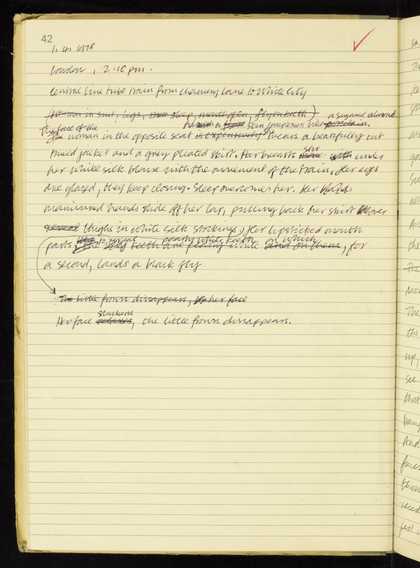 42
London, 2.10 pm.
Central Line tube train from Chancery Lane to White City
The face of the
woman in the opposite seat is expressionless. wears a beautifully cut
tweed jacket and a grey pleated skirt. Her breasts stir under
her white silk blouse with the movement of the train. Her eyes
are glazed, they keep closing. Sleep overcomes her. Her
manicured hands slide off her lap, pulling back her skirt over
thighs in white silk stockings. Her lipsticked mouth
pearly white teeth on which
parts, for
a second, lands a black fly
The little frown disappears, her face
Her face slackens, the little frown disappears.